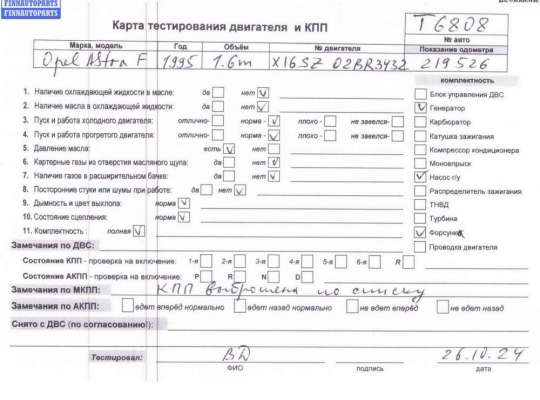 FINNAUTOPARTS
FINNAUTOPARTS
Карта тестирования двигателя и КПП
T6808
№ авто
Марка, модель Год Объём № двигателя Показание одометра
Opel Astra F 1995 1.6m X16SZ 02BR3432 219526
комплектность
1. Наличие охлаждающей жидкости в масле: да нет V Блок управления ДВС
2. Наличие масла в охлаждающей жидкости: да нет V V Генератор
3. Пуск и работа холодного двигателя: отлично- норма - V плохо - не завелся- Карбюратор
4. Пуск и работа прогретого двигателя: отлично- норма - V плохо - не завелся- Катушка зажигания
5. Давление масла: есть V нет Компрессор кондиционера
6. Картерные газы из отверстия масляного щупа: да нет V Моновпрыск
7. Наличие газов в расширительном бачке: да нет V V Насос г/у
8. Посторонние стуки или шумы при работе: да нет V Распределитель зажигания
9. Дымность и цвет выхлопа: норма V ТНВД
10. Состояние сцепления: норма V Турбина
11. Комплектность : полная V V Форсунка
Замечания по ДВС: Проводка двигателя
Состояние КПП - проверка на включение: 1-я 2-я 3-я 4-я 5-я 6-я R
Состояние АКПП - проверка на включение: P R N D
Замечания по МКПП: КПП выброшена по списку
Замечания по АКПП: едет вперёд нормально едет назад нормально не едет вперёд не едет назад
Снято с ДВС (по согласованию!):
Тестировал: ВД 26.10.24
ФИО подпись дата